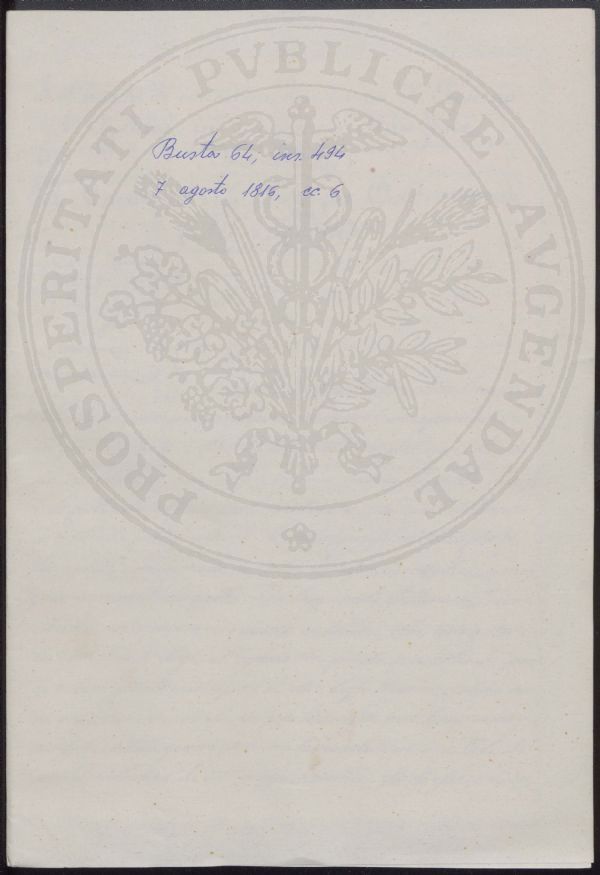 PROSPERITATI PVBLICAE AVGENDAE
Busta 64, ins. 494
7 agosto 1816, cc. 6